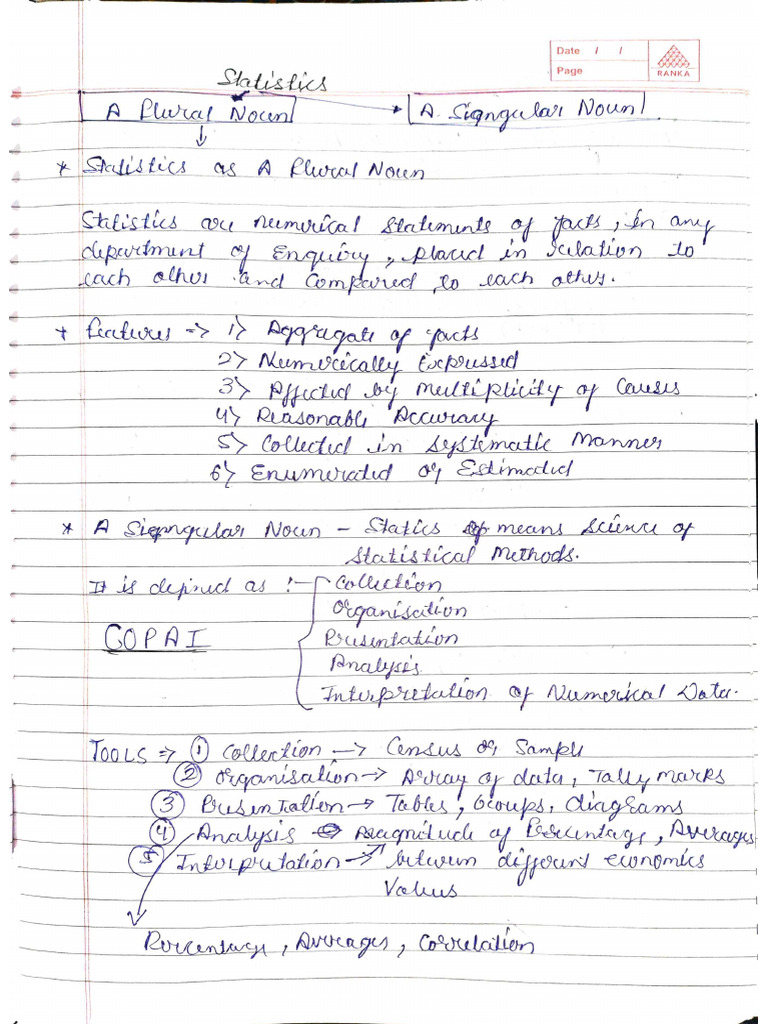 Date / /
Page
RANKA
Statistics
A Plural Noun → A. Siqngular Noun
* Statistics as A Plural Noun
Statistics are numerical statements of facts, in any
department of Enquiry, placed in relation to
each other and compared to each other.
+ features => 1> Aggregate of facts
2> Numerically Expressed
3> Affected by multiplicity of Causes
4> Reasonable Accuracy
5> Collected in systematic Manner
6> Enumerated or Estimated
* A Singngular Noun - Statics means science of
Statistical Methods.
It is defined as :- Collection
Organisation
COPAI Presentation
Analysis
Interpretation of Numerical Data.
TOOLS => ① Collection → Census or Sample
② Organisation → Array of data, Tally marks
③ Presentation → Tables, Groups, diagrams
④ Analysis → Magnitude of Percentage, Averages
⑤ Interpretation → between different economics
Values
Percentage, Averages, Correlation